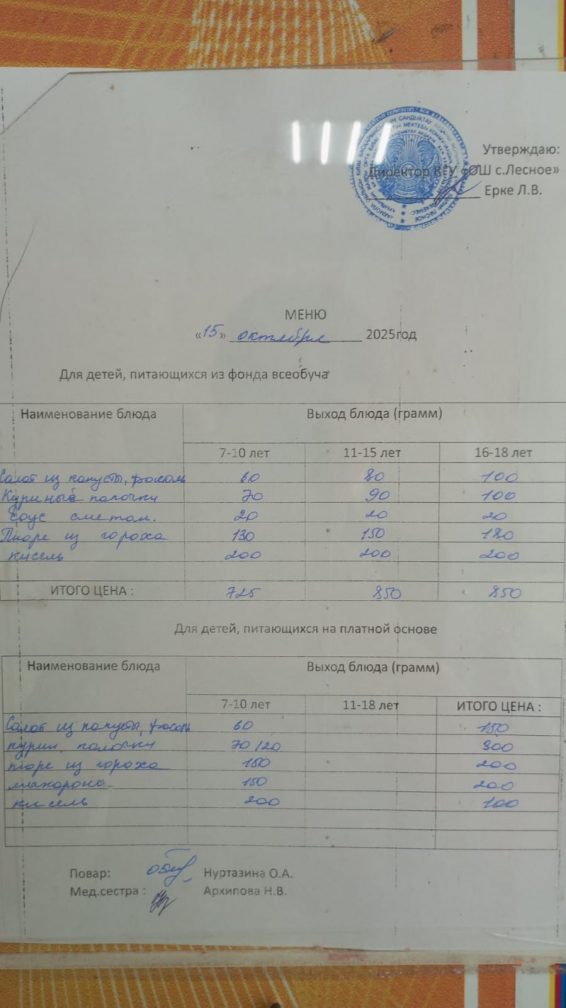 Утверждаю:
Директор КГУ «ОШ с.Лесное»
Ерке Л.В.
МЕНЮ
«15» октября 2025год
Для детей, питающихся из фонда всеобуча
Наименование блюда Выход блюда (грамм)
7-10 лет 11-15 лет 16-18 лет
Салат из капусты, фасоль 60 80 100
Куриные палочки 70 90 100
Соус сметан. 20 20 20
Пюре из гороха 130 150 180
кисель 200 200 200
ИТОГО ЦЕНА : 725 850 850
Для детей, питающихся на платной основе
Наименование блюда Выход блюда (грамм)
7-10 лет 11-18 лет ИТОГО ЦЕНА :
Салат из капусты, фасоль 60 150
курин. палочки 70/20 300
пюре из гороха 150 200
макароны 150 200
кисель 200 100
Повар: Нуртазина О.А.
Мед.сестра : Архипова Н.В.